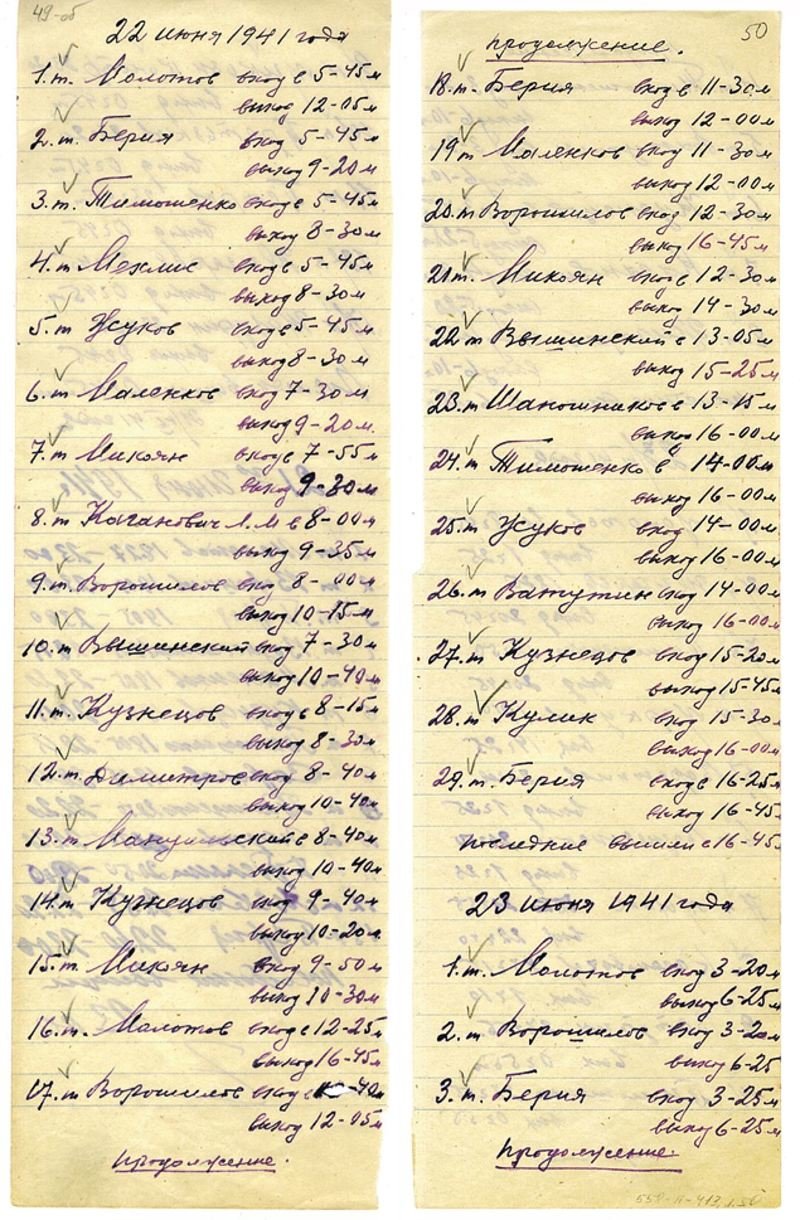 49-об
22 июня 1941 года
1. т. Молотов вход в 5-45м
выход 12-05м
2. т. Берия вход 5-45м
выход 9-20м
3. т. Тимошенко вход в 5-45м
выход 8-30м
4. т Мехлис вход в 5-45м
выход 8-30м
5. т Жуков вход в 5-45м
выход 8-30м
6. т Маленков вход 7-30м
выход 9-20м.
7. т Микоян вход в 7-55м
выход 9-30м
8. т Каганович Л.М в 8-00м
выход 9-35м
9. т Ворошилов вход 8-00м
выход 10-15м
10. т Вышинский вход 7-30м
выход 10-40м
11. т. Кузнецов вход в 8-15м
выход 8-30м
12. т. Димитров вход 8-40м
выход 10-40м
13. т. Мануильский в 8-40м
выход 10-40м
14. т Кузнецов вход 9-40м
выход 10-20м
15. т. Микоян вход 9-50м
выход 10-30м
16. т. Молотов вход в 12-25м
выход 16-45м
17. т Ворошилов вход в -40м
выход 12-05м
продолжение.
50
продолжение.
18. т. Берия вход в 11-30м
выход 12-00м
19 т Маленков вход 11-30м
выход 12-00м
20. т Ворошилов вход 12-30м
выход 16-45м
21 т. Микоян вход в 12-30м
выход 14-30м
22 т Вышинский в 13-05м
выход 15-25м
23. т Шапошников в 13-15м
выход 16-00м
24. т. Тимошенко в 14-00м
выход 16-00м
25. т Жуков вход 14-00м
выход 16-00м
26. т Ватутин вход 14-00м
выход 16-00м
27. т Кузнецов вход 15-20м
выход 15-45м
28. т Кулик вход 15-30
выход 16-00м
29. т. Берия вход в 16-25м
выход 16-45
Последние вышли в 16-45
23 июня 1941 года
1. т. Молотов вход 3-20м
выход 6-25м
2. т Ворошилов вход 3-20м
выход 6-25
3. т. Берия вход 3-25м
выход 6-25м
Продолжение.
558-11-413, л. 50